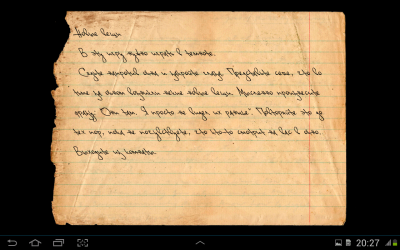 Новые вещи
В эту игру нужно играть в темноте.
Сядьте напротив окна и закройте глаза. Представьте себе, что во
тьме за окном возникли некие новые вещи. Мысленно произнесите
фразу: "Они там. Я просто не видел их раньше." Повторяйте это до
тех пор, пока не почувствуете, что кто-то смотрит на вас в окно.
Выходите из комнаты.
20:27